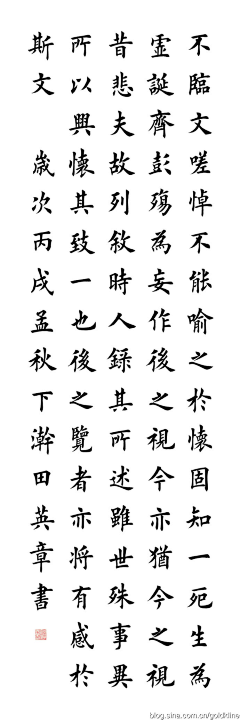 不臨文嗟悼不能喻之於懷固知一死生為
虛誕齊彭殤為妄作後之視今亦猶今之視
昔悲夫故列敘時人錄其所述雖世殊事異
所以興懷其致一也後之覽者亦將有感於
斯文 歲次丙戌孟秋下澣田英章書